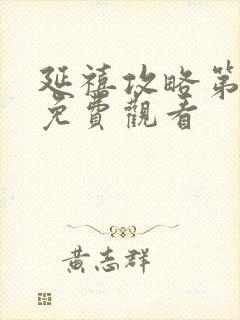 延禧攻略第
免費觀看
黃志群